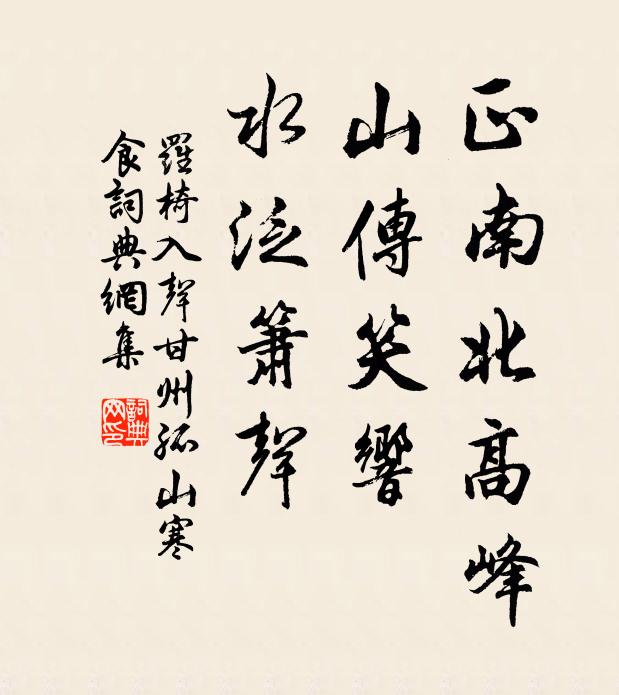 正南北高峰
山傳笑響
水泛簫聲
羅椅入聲甘州孤山寒
食詞典網集
詞典網印